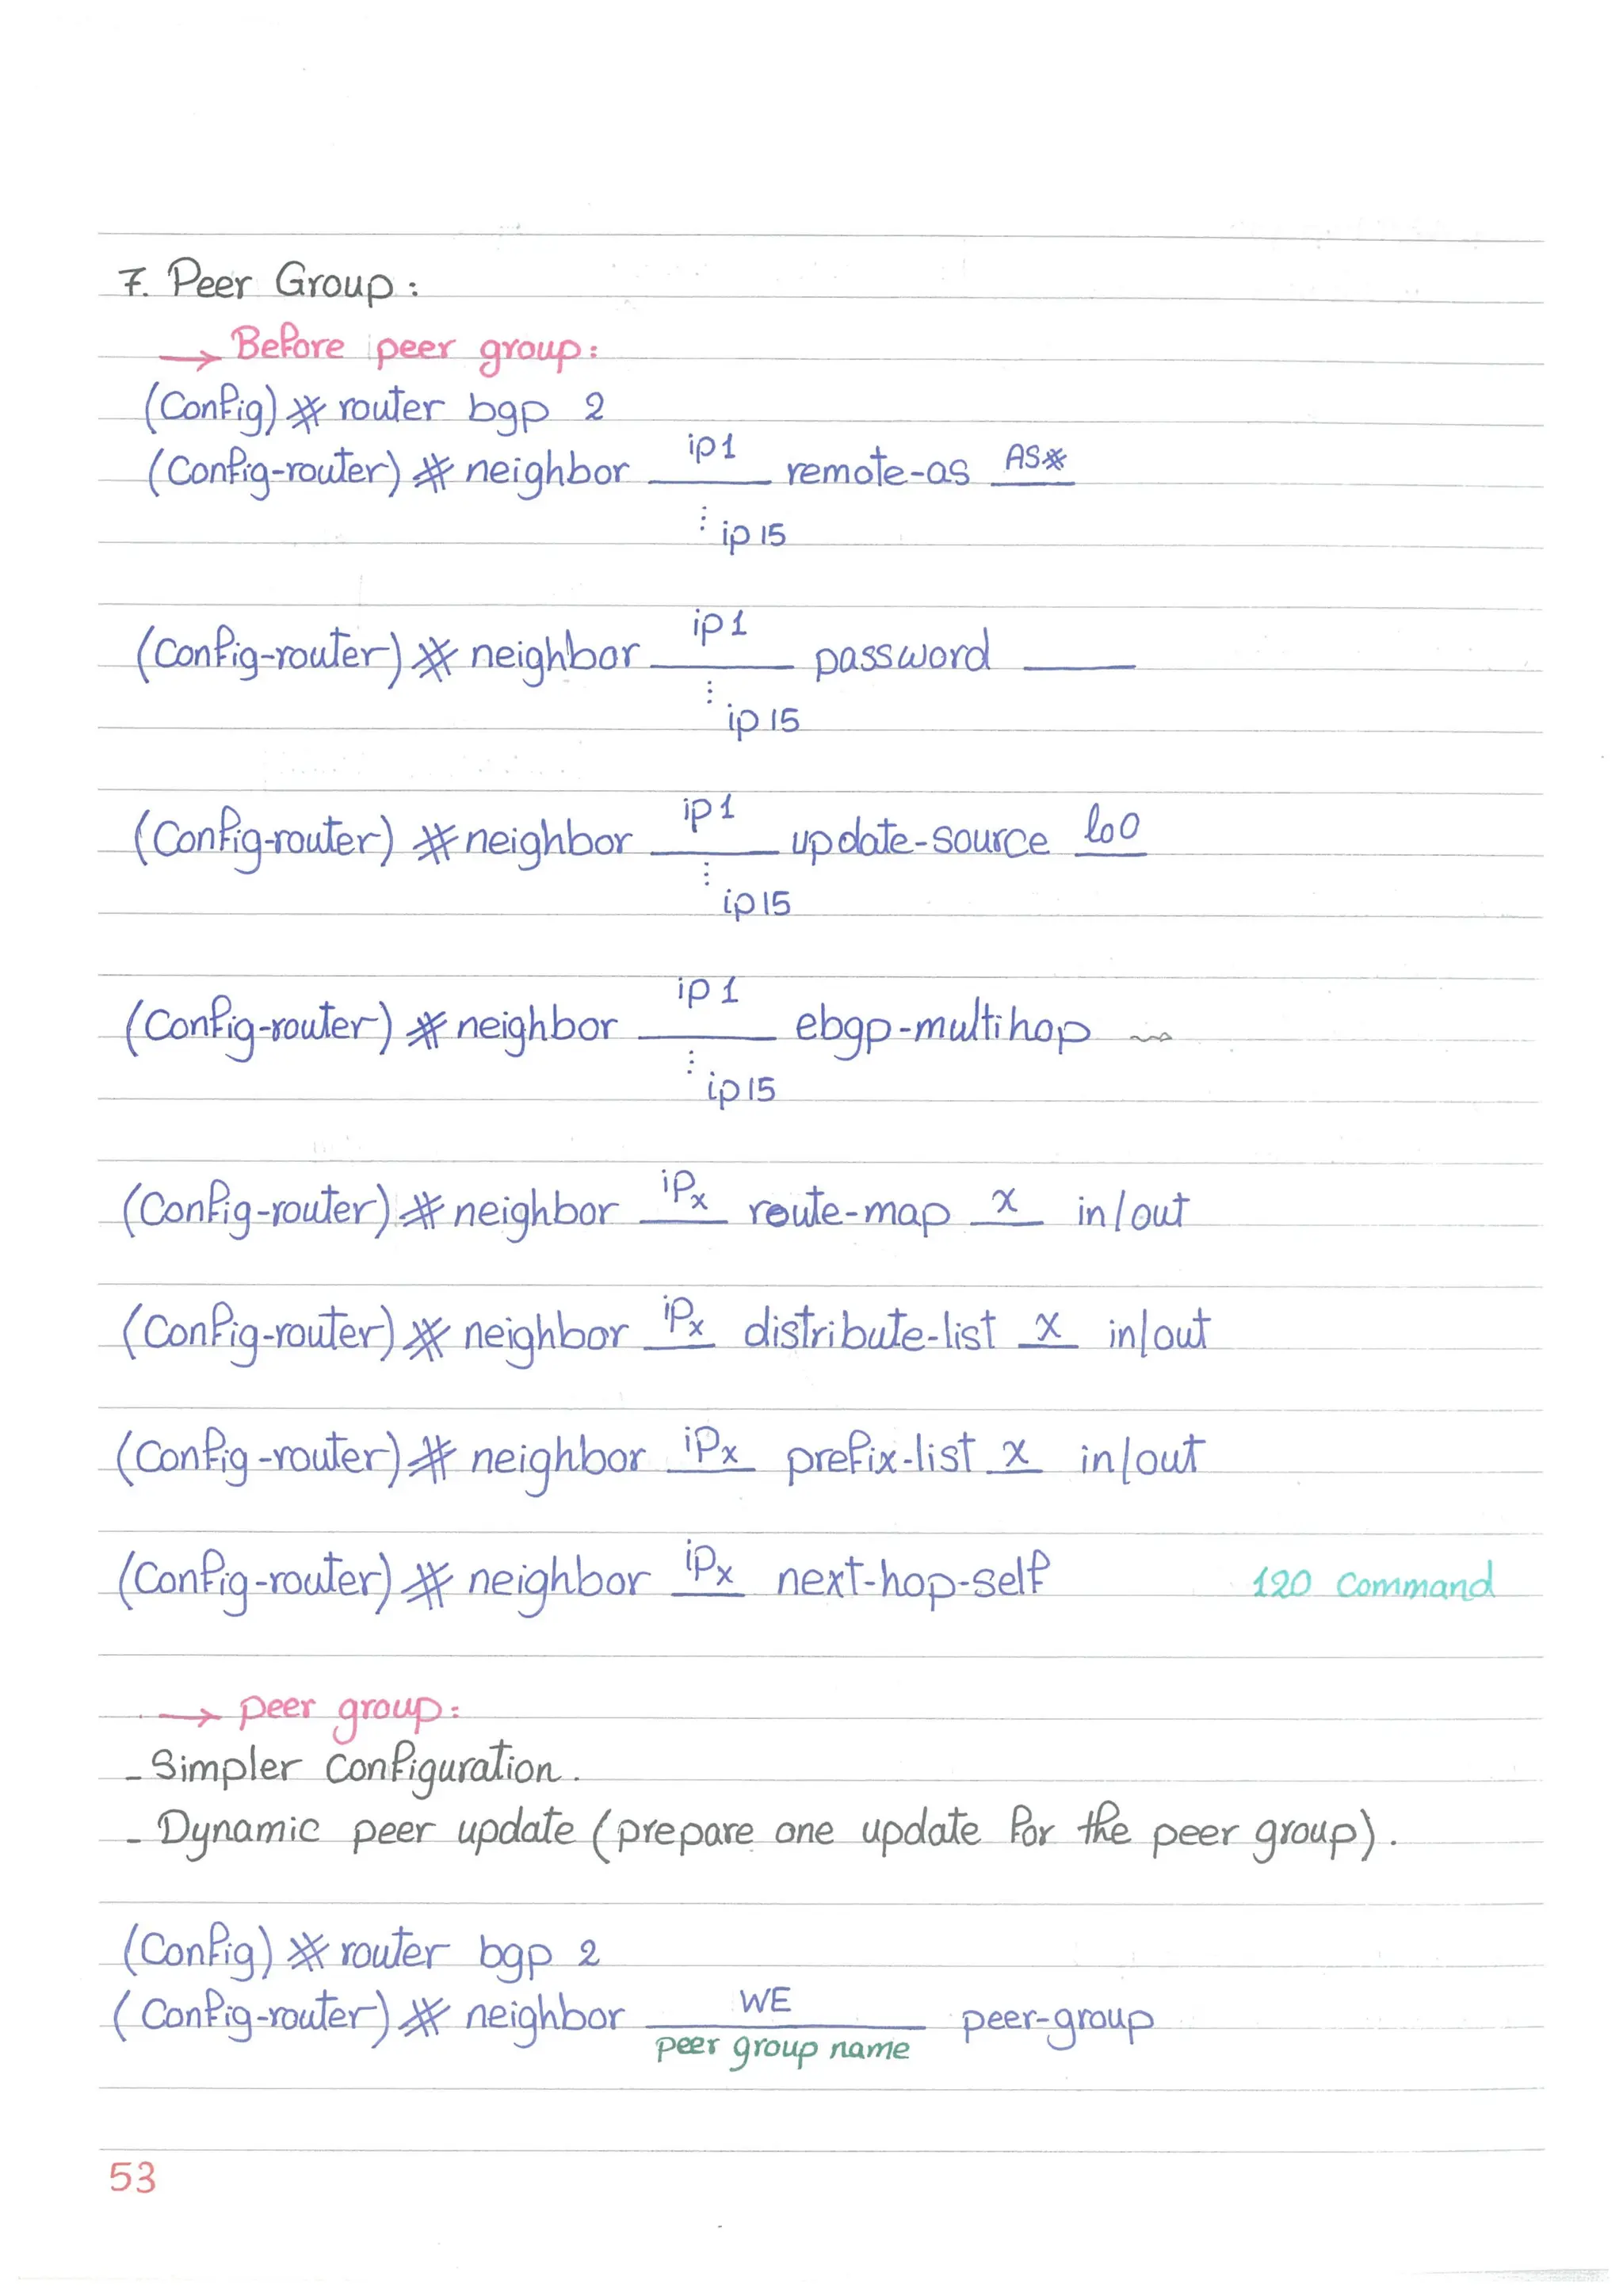 7. Peer Group:
→ Before peer group:
(Config)# router bgp 2
(Config-router)# neighbor ip1 remote-as AS#
⋮ ip15
(Config-router)# neighbor ip1 password ____
⋮ ip15
(Config-router)# neighbor ip1 update-source lo0
⋮ ip15
(Config-router)# neighbor ip1 ebgp-multihop
⋮ ip15
(Config-router)# neighbor ipx route-map x in/out
(Config-router)# neighbor ipx distribute-list x in/out
(Config-router)# neighbor ipx prefix-list x in/out
(Config-router)# neighbor ipx next-hop-self 120 Command
→ peer group:
- Simpler Configuration.
- Dynamic peer update (prepare one update for the peer group).
(Config)# router bgp 2
(Config-router)# neighbor WE peer-group
peer group name
53